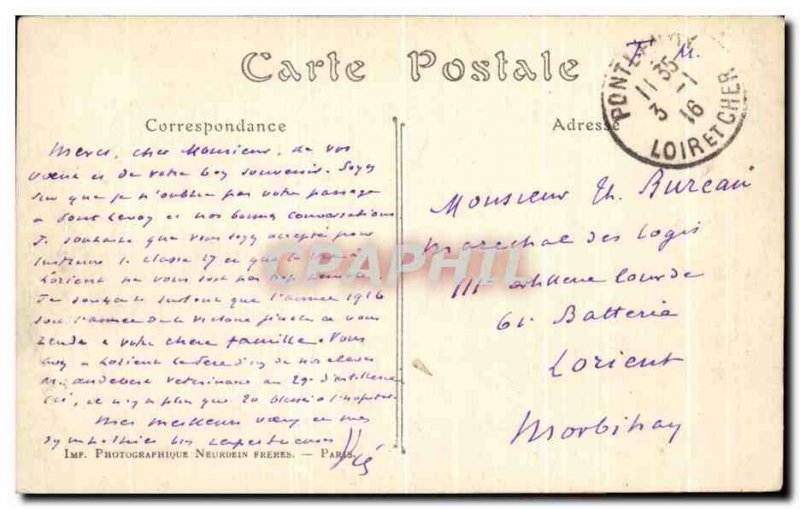 Carte Postale
F. M.
PONTLEVOY
11 35
3 - 1
16
LOIR ET CHER
Correspondance
Adresse
Merci, cher Monsieur, de vos
vœux et de votre bon souvenir. Soyez
sûr que je n'oublie pas votre passage
a Pont Levoy et nos bonnes conversations
Je souhaite que vous soyez accepté pour
instruire la classe 17 et que le
Lorient ne vous soit pas
Je souhaite surtout que l'année 1916
soit l'année de la Victoire finale et vous
rende a votre chère famille. Vous
avez a Lorient le père d'un de nos élèves
M. vétérinaire au 29e d'artillerie
Ici, il n'y a plus que 20 blessés a l'hopital
Mes meilleurs vœux et mes
sympathies très
Monsieur Th. Bureau
Marechal des Logis
111e artillerie lourde
61e Batterie
Lorient
Morbihan
CPAPHIL
IMP. PHOTOGRAPHIQUE NEURDEIN FRÈRES. — PARIS.